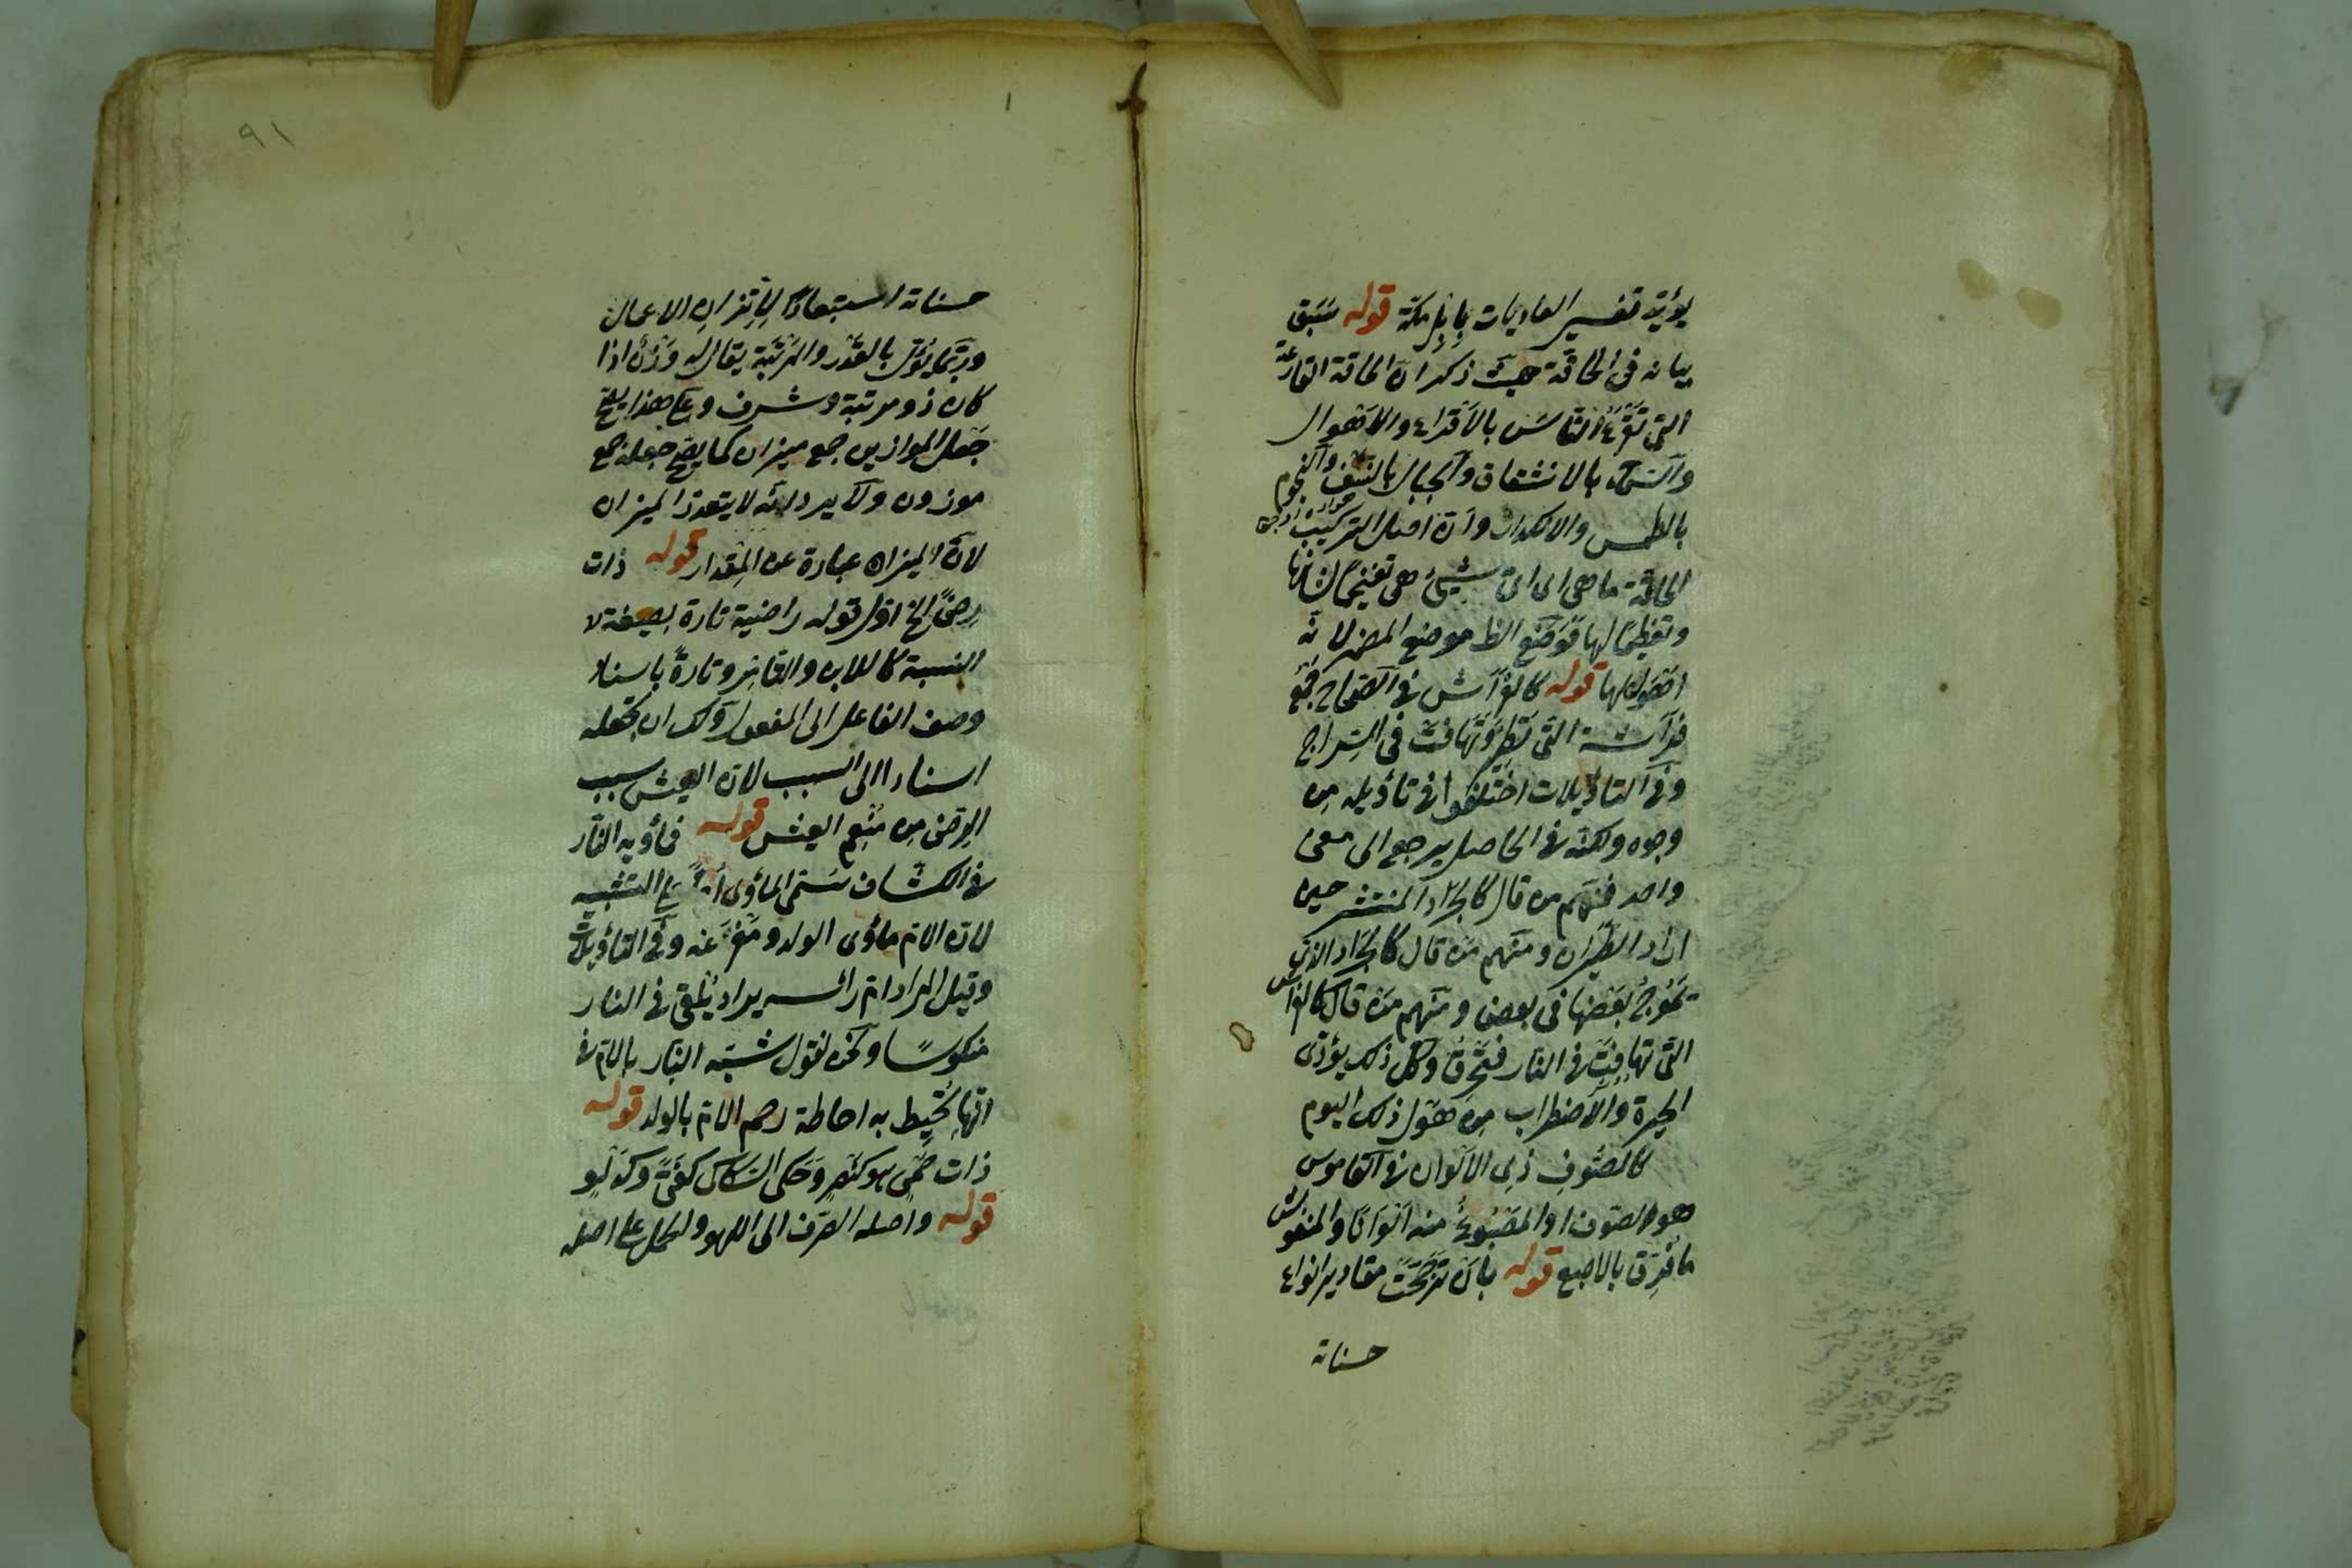 يؤيد تفسير العاديات بابل مكة قوله سبق
بيانه في الحاقة حيث ذكر ان الحاقة القارعة
التى تقرع الناس بالافزاع والاهوال
والسماء بالانشقاق والجبال بالنسف والنجوم
بالطمس والانكدار وان اصل التركيب
الحاقة ما هى اى اىّ شيئ هى تفخيما لشانها
وتعظيما لها فوضع الظ موضع المضمر لانه
اهول لها قوله كالفراش فى الصحاح جمع
فراشة التى تطير وتهافت في السراج
وفى التأويلات اختلفوا فى تأويله من
وجوه ولكنه فى الحاصل يرجع الى معنى
واحد فمنهم من قال كالجراد المنتشر حين
اراد الطيران ومنهم من قال كالجراد الذى
يموج بعضها في بعض ومنهم من قال كالفراش
التى تهافت فى النار فتحرق وكل ذلك يؤدى
الحيرة والاضطراب من هول ذلك اليوم
كالصوف ذى الالوان فى القاموس
هو الصوف او المصبوغ منه الوانا والمنفوش
ما فرق بالاصبع قوله بان ترجحت مقادير انواع
حسناته
٩١
حسناته استبعادًا لاتزان الاعمال
وربما يؤول بالقدر والمرتبة يقال له وزن اذا
كان ذو مرتبة وشرف وعلى هذا يصح
جعل الموازين جمع ميزان كما يصح جعله جمع
موزون ولا يرد انه لا يتعدد الميزان
لان الميزان عبارة عن المقدار قوله ذات
رضىً الخ اول قوله راضية تارة بصيغة
النسبة كاللابن والتامر وتارةً باسناد
وصف الفاعل الى المفعول ولك ان تجعله
اسنادا الى السبب لان العيش سبب
الرضى من منعم العيش قوله فمأويه النار
فى الكشاف سمى المأوى امًّا على التشبيه
لان الام مأوى الولد ومفزعه وفى التأويلات
وقيل المراد ام رأسه يراد يلقى فى النار
منكوسًا ونحن نقول شبه النار بالام فى
انها تحيط به احاطة رحم الام بالولد قوله
ذات حمى وحكى الكسائى
قوله واصله الصرف الى اللهو والحمل على اصله